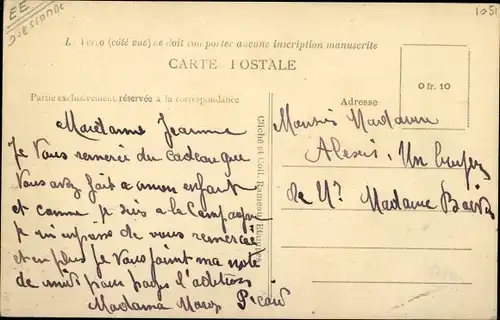 EE
1951
Le Verso (côté vue) ne doit comporter aucune inscription manuscrite
CARTE POSTALE
0 fr. 10
Partie exclusivement réservée à la correspondance
Adresse
Madame Jeanne
Je Vous remercie du Cadeau que
Vous avez fait a mon enfant
et comme je suis a la Campagne
je m'inpresse de vous remercié
et en plus je Vous joint ma note
de midi pour payer l'adition
Madame Picard
Cliché et Coll. Rameau, Etampes
Monsieur Madame
Alexis, Un
de Madame